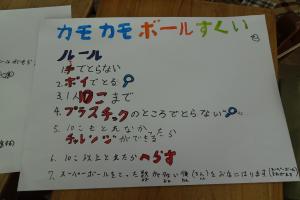 カモカモボールすくい
ルール
1.手でとらない
2.ポイでとる
3.1人10こまで
4.プラスチックのところでとらない
5.10こもとれなかったら
チャレンジができる
6.10こ以上とえたらへらす
7.スーパーボールをとった数が多い順